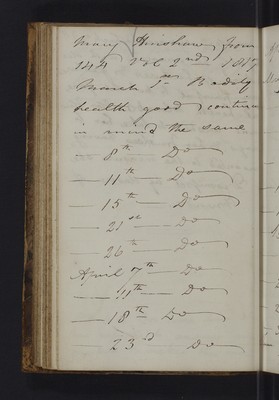 Mary Hinshaw from
144 Vol 2nd 1817
March 1st Bodily
health good continu
in mind the same
— 8th — Do
— 11th — Do
— 15th — Do
— 21st — Do
— 26th — Do
April 7th — Do
— 11th — Do
— 18th Do
23d Do